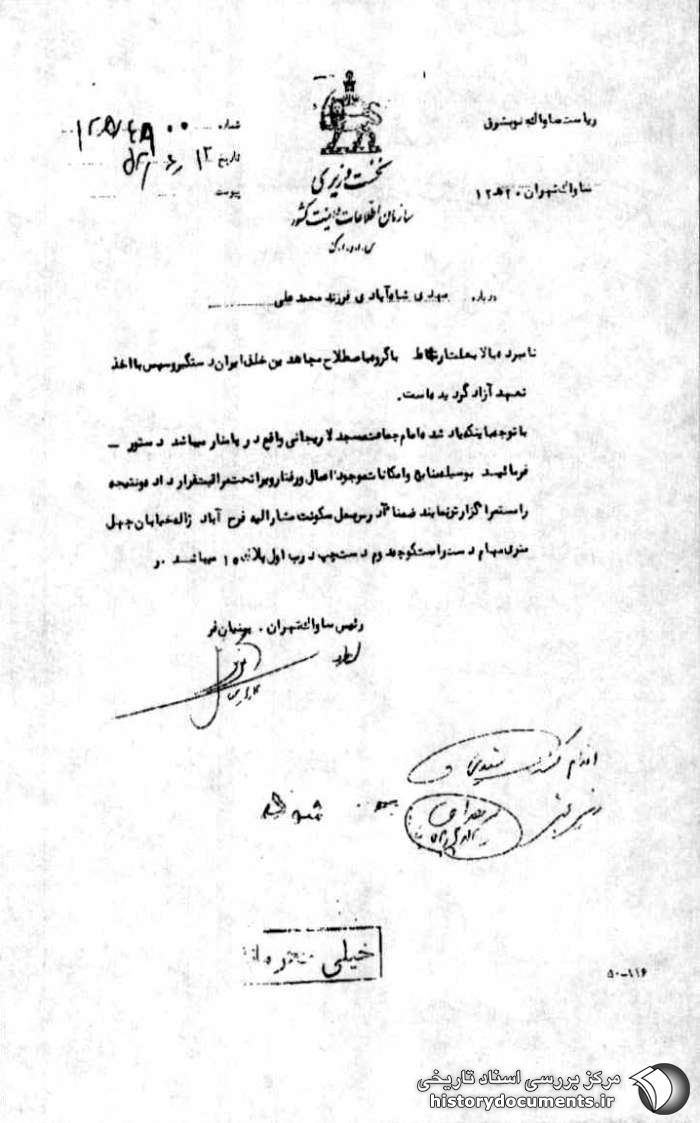 ریاست ساواک
ساواک تهران ۲۰ ه ۱۲
نخست وزیری
سازمان اطلاعات و امنیت کشور
س.ا.و.ا.ک
شماره
تاریخ
پیوست
درباره مهدی شاه‌آبادی فرزند محمد علی
نامبرده بالا بعلت ارتباط با گروه باصطلاح مجاهدین خلق ایران دستگیر و سپس با اخذ
تعهد آزاد گردیده است.
با توجه باینکه یاد شده امام جماعت مسجد لاریجانی واقع در پامنار میباشد دستور –
فرمائید بوسیله منابع و امکانات موجود اعمال و رفتار ویرا تحت مراقبت قرار داده و نتیجه
را مستمرا گزارش نمایند ضمنا آدرس محل سکونت مشارالیه فرح آباد ژاله خیابان چهل
متری سهام دست راست کوچه دوم دست چپ درب اول پلاک ۱۰ میباشد. و
رئیس ساواک تهران .
اقدام کنند
شود
خیلی محرمانه
۵۰-۱۱۶
مرکز بررسی اسناد تاریخی
historydocuments.ir